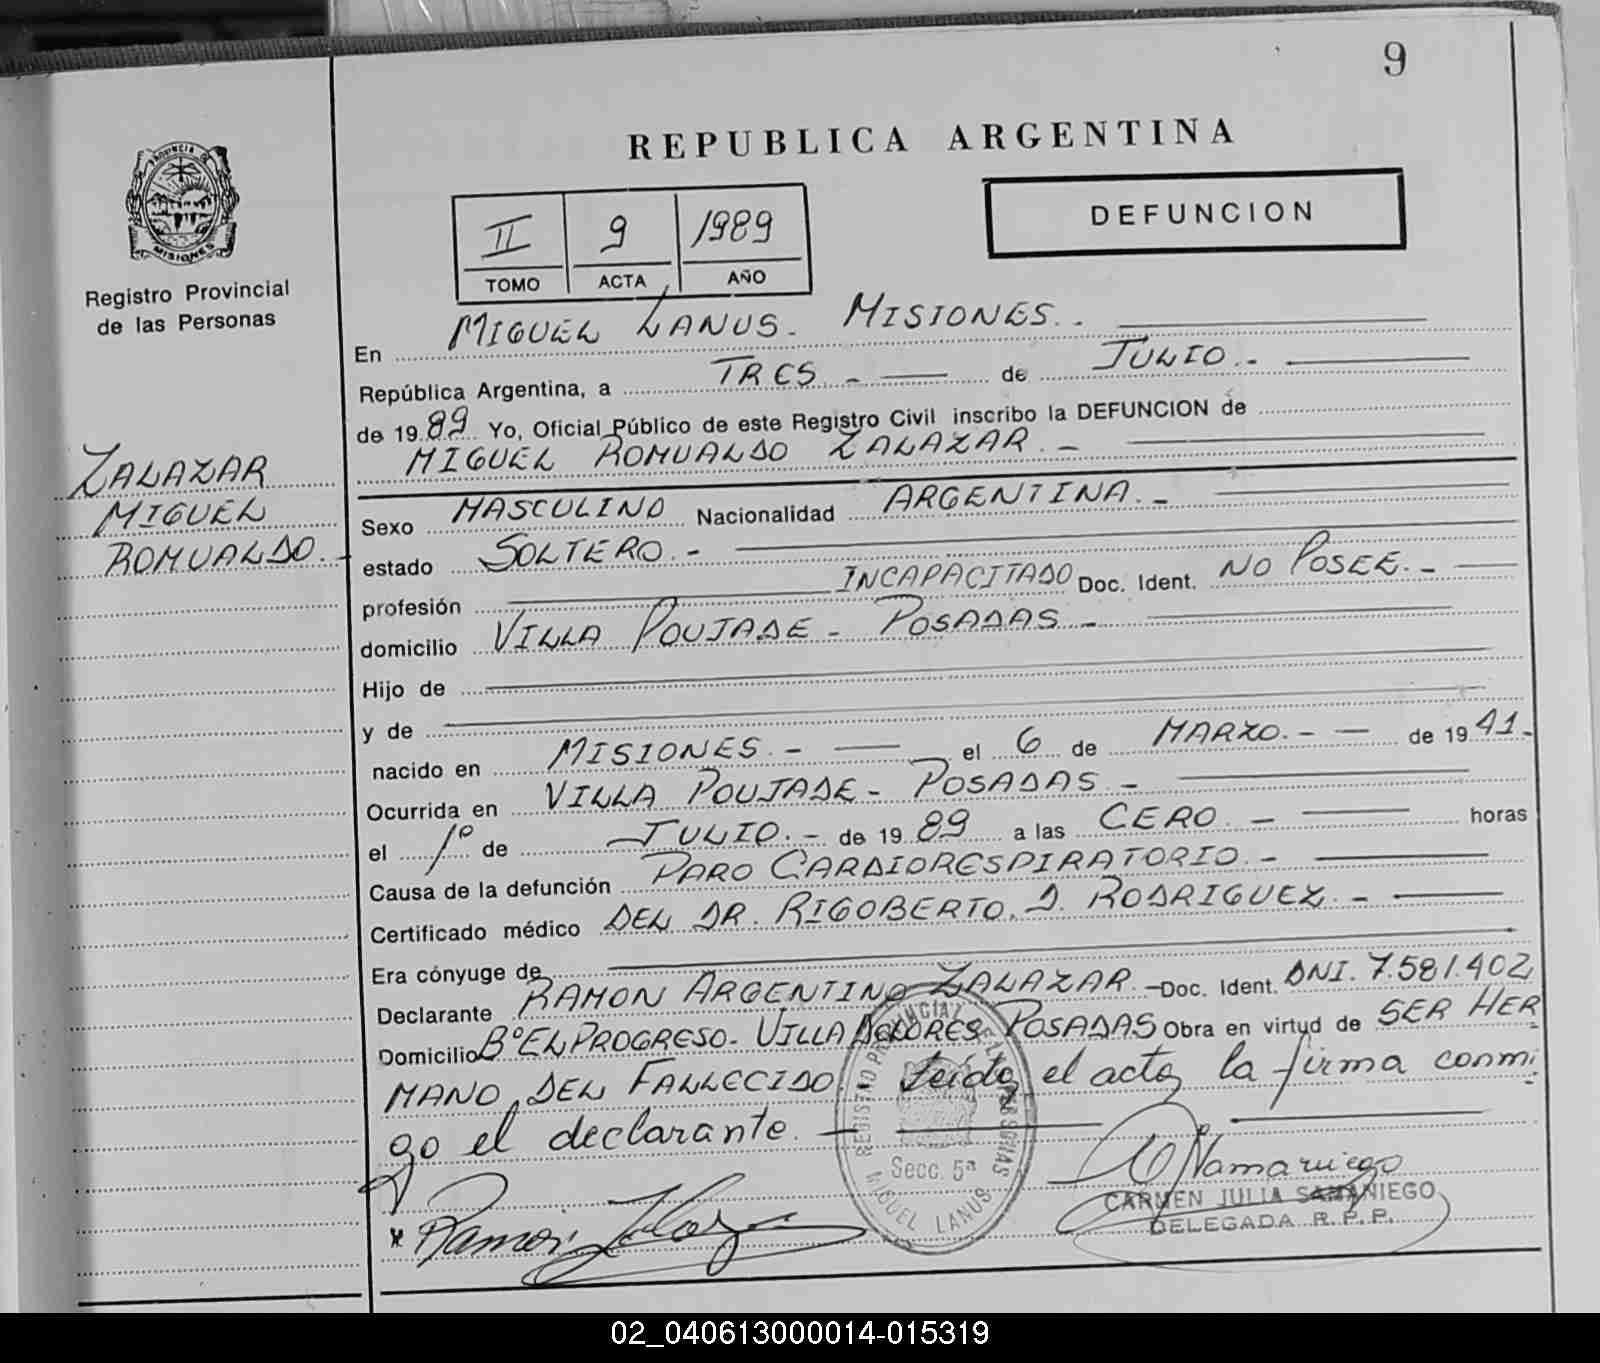 9
REPUBLICA ARGENTINA
PROVINCIA DE
MISIONES
Registro Provincial
de las Personas
II 9 1989
TOMO ACTA AÑO
DEFUNCION
En MIGUEL LANUS. MISIONES.
República Argentina, a TRES.- de JULIO.-
de 1989 Yo, Oficial Público de este Registro Civil inscribo la DEFUNCION de
MIGUEL ROMUALDO ZALAZAR.-
ZALAZAR
MIGUEL
ROMUALDO.-
Sexo MASCULINO Nacionalidad ARGENTINA.-
estado SOLTERO.-
profesión INCAPACITADO Doc. Ident. NO POSEE.-
domicilio VILLA POUJADE - POSADAS -
Hijo de
y de
nacido en MISIONES.- el 6 de MARZO.- de 1941.-
Ocurrida en VILLA POUJADE - POSADAS -
el 1º de JULIO.- de 1989 a las CERO.- horas
Causa de la defunción PARO CARDIORESPIRATORIO.-
Certificado médico DEL DR. RIGOBERTO. D. RODRIGUEZ.-
Era cónyuge de
Declarante RAMON ARGENTINO ZALAZAR.- Doc. Ident. DNI. 7.581.402
Domicilio Bº EL PROGRESO - VILLA DOLORES POSADAS Obra en virtud de SER HER
MANO DEL FALLECIDO.- Leída el acta, la firma conmi
go el declarante.
REGISTRO PROVINCIAL DE LAS PERSONAS
Secc. 5ª
MIGUEL LANUS
Ramon Zalazar
CARMEN JULIA SAMANIEGO
DELEGADA R.P.P.
02_040613000014-015319